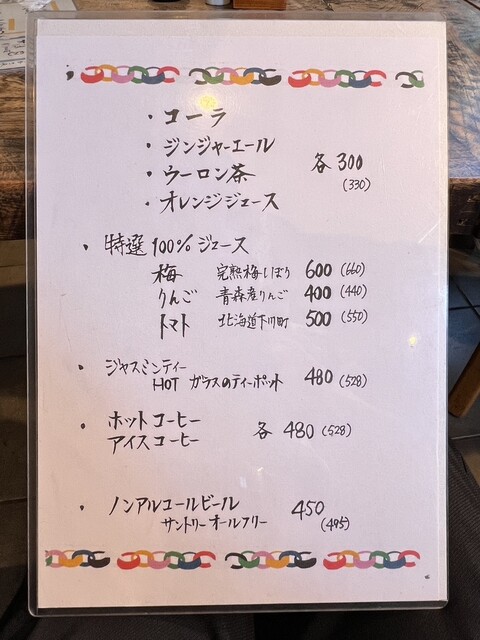 ・コーラ
・ジンジャーエール
・ウーロン茶 各300 (330)
・オレンジジュース
・特選100%ジュース
梅 完熟梅しぼり 600 (660)
りんご 青森産りんご 400 (440)
トマト 北海道下川町 500 (550)
・ジャスミンティー
HOT ガラスのティーポット 480 (528)
・ホットコーヒー
アイスコーヒー 各480 (528)
・ノンアルコールビール 450
サントリーオールフリー (495)